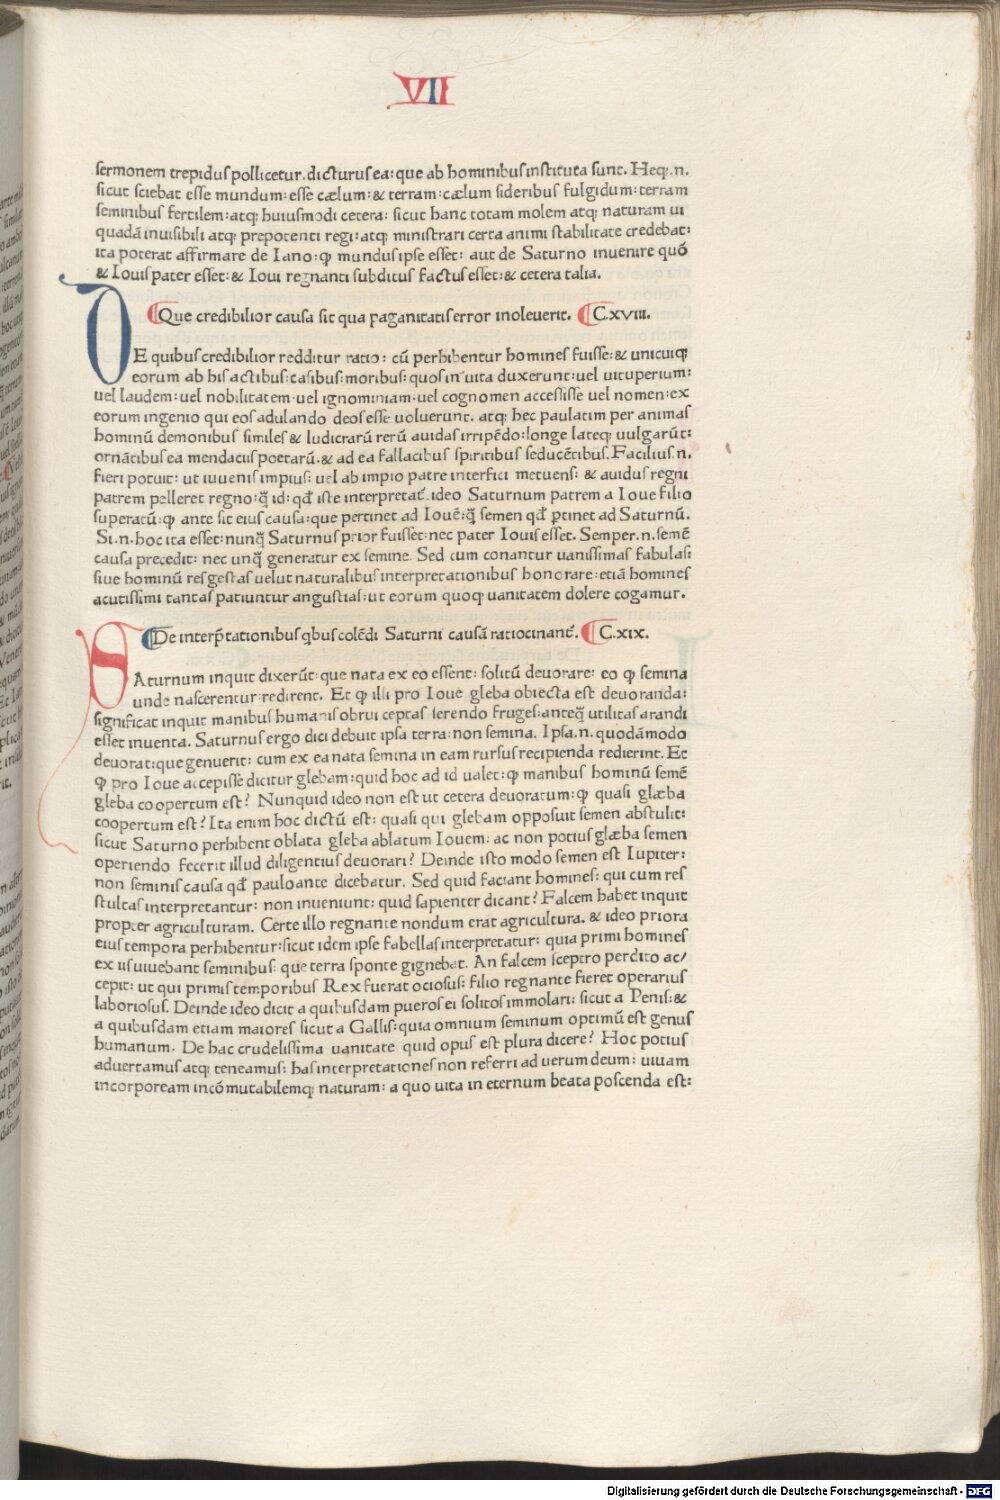 VII
sermonem trepidus pollicetur. dicturus ea: que ab hominibus instituta sunt. Heq;.n.
sicut sciebat esse mundum: esse cælum: & terram: cælum sideribus fulgidum: terram
seminibus fertilem: atq; huiusmodi cetera: sicut hanc totam molem atq; naturam ui
quadā inuisibili atq; prepotenti regi: atq; ministrari certa animi stabilitate credebat:
ita poterat affirmare de Iano: ꝙ mundus ipse esset: aut de Saturno inuenire quō
& Iouis pater esset: & Ioui regnanti subditus factus esset: & cetera talia.
¶Que credibilior causa sit qua paganitatis error inoleuerit. ¶C.xviii.
DE quibus credibilior redditur ratio: cū perhibentur homines fuisse: & unicuiqꝫ
eorum ab his actibus: casibus: moribus: quos in uita duxerunt: uel uituperium:
uel laudem: uel nobilitatem. uel ignominiam. uel cognomen accessisse uel nomen: ex
eorum ingenio qui eos adulando deos esse uoluerunt. atq; hec paulatim per animas
hominū demonibus similes & ludicrarū rerū auidas irripēdo: longe lateq; uulgarūt:
ornātibus ea mendaciis poetarū. & ad ea fallacibus spiritibus seducētibus. Facilius.n.
fieri potuit: ut iuuenis impius: uel ab impio patre interfici metuens: & auidus regni
patrem pelleret regno: ꝙ̄ id: qđ iste interpretat̄. ideo Saturnum patrem a Ioue filio
superatū: ꝙ ante sit eius causa: que pertinet ad Iouē: ꝙ̄ semen qđ ꝑtinet ad Saturnū.
Si.n. hoc ita esset: nunꝙ̄ Saturnus prior fuisset: nec pater Iouis esset. Semper.n. semē
causa precedit: nec unꝙ̄ generatur ex semine. Sed cum conantur uanissimas fabulas:
siue hominū res gestas uelut naturalibus interpretationibus honorare: etiā homines
acutissimi tantas patiuntur angustias: ut eorum quoq; uanitatem dolere cogamur.
¶De interp̄tationibus qbus colēdi Saturni causā ratiocinant̄. ¶C.xix.
SAturnum inquit dixerūt: que nata ex eo essent: solitū deuorare: eo ꝙ semina
unde nascerentur: redirent. Et ꝙ illi pro Ioue gleba obiecta est deuoranda:
significat inquit manibus humanis obrui ceptas serendo fruges: anteꝙ̄ utilitas arandi
esset inuenta. Saturnus ergo dici debuit ipsa terra: non semina. Ipsa.n. quodāmodo
deuorat: que genuerit: cum ex ea nata semina in eam rursus recipienda redierint. Et
ꝙ pro Ioue accepisse dicitur glebam: quid hoc ad id ualet: ꝙ manibus hominū semē
gleba coopertum est? Nunquid ideo non est ut cetera deuoratum: ꝙ quasi glæba
coopertum est? Ita enim hoc dictū est: quasi qui glebam opposuit semen abstulit:
sicut Saturno perhibent oblata gleba ablatum Iouem: ac non potius glæba semen
operiendo fecerit illud diligentius deuorari? Deinde isto modo semen est Iupiter:
non seminis causa qđ pauloante dicebatur. Sed quid faciant homines: qui cum res
stultas interpretantur: non inueniunt: quid sapienter dicant? Falcem habet inquit
propter agriculturam. Certe illo regnante nondum erat agricultura. & ideo priora
eius tempora perhibentur: sicut idem ipse fabellas interpretatur: quia primi homines
ex iis uiuebant seminibus: que terra sponte gignebat. An falcem sceptro perdito ac/
cepit: ut qui primis temporibus Rex fuerat ociosus: filio regnante fieret operarius
laboriosus. Deinde ideo dicit a quibusdam pueros ei solitos immolari: sicut a Penis: &
a quibusdam etiam maiores sicut a Gallis: quia omnium seminum optimū est genus
humanum. De hac crudelissima uanitate quid opus est plura dicere? Hoc potius
aduertamus atq; teneamus: has interpretationes non referri ad uerum deum: uiuam
incorpoream incōmutabilemq; naturam: a quo uita in eternum beata poscenda est:
Digitalisierung gefördert durch die Deutsche Forschungsgemeinschaft - DFG